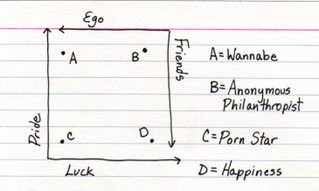 Ego
A
B
Friends
Pride
C
D
Luck
A=Wannabe
B=Anonymous
Philanthropist
C=Porn Star
D=Happiness